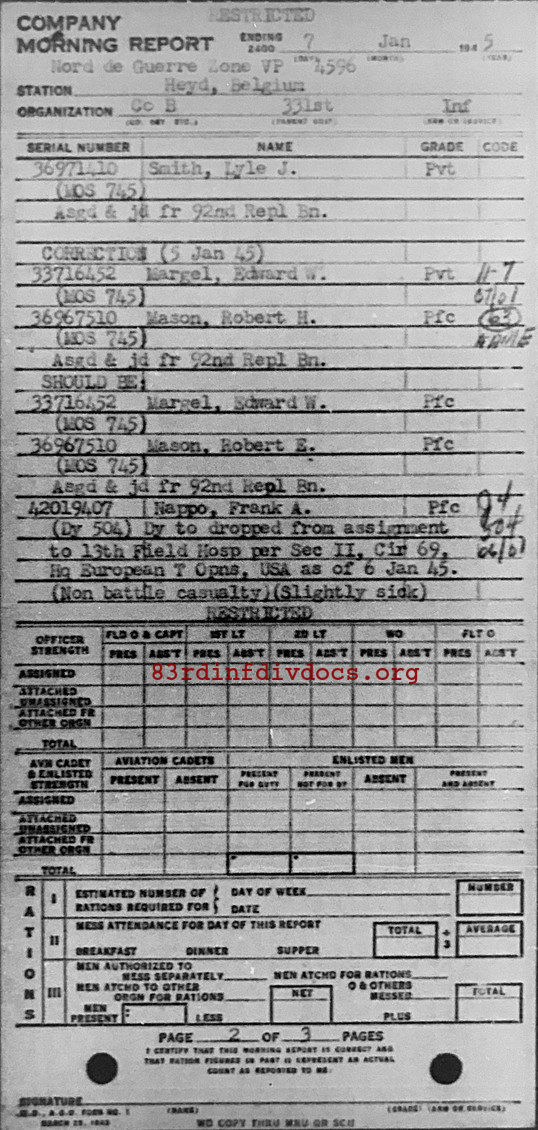 RESTRICTED
COMPANY
MORNING REPORT ENDING 2400 7 Jan 1945
(DAY) (MONTH) (YEAR)
Nord de Guerre Zone VP 4596
STATION Heyd, Belgium
ORGANIZATION Co B 331st Inf
(CO. DET ETC.) (PARENT UNIT) (ARM OR SERVICE)
SERIAL NUMBER NAME GRADE CODE
36971410 Smith, Lyle J. Pvt
(MOS 745)
Asgd & jd fr 92nd Repl Bn.
CORRECTION (5 Jan 45)
33716452 Margel, Edward W. Pvt
(MOS 745)
36967510 Mason, Robert H. Pfc
(MOS 745)
Asgd & jd fr 92nd Repl Bn.
SHOULD BE:
33716452 Margel, Edward W. Pfc
(MOS 745)
36967510 Mason, Robert E. Pfc
(MOS 745)
Asgd & jd fr 92nd Repl Bn.
42019407 Nappo, Frank A. Pfc
(Dy 504) Dy to dropped from assignment
to 13th Field Hosp per Sec II, Cir 69,
Hq European T Opns, USA as of 6 Jan 45.
(Non battle casualty)(Slightly sick)
RESTRICTED
OFFICER STRENGTH FLD O & CAPT 1ST LT 2D LT WO FLT O
PRES ABS'T PRES ABS'T PRES ABS'T PRES ABS'T PRES ABS'T
ASSIGNED
83rdinfdivdocs.org
ATTACHED UNASSIGNED
ATTACHED FR OTHER ORGN
TOTAL
AVN CADET & ENLISTED STRENGTH AVIATION CADETS ENLISTED MEN
PRESENT ABSENT PRESENT FOR DUTY PRESENT NOT FOR DY ABSENT PRESENT AND ABSENT
ASSIGNED
ATTACHED UNASSIGNED
ATTACHED FR OTHER ORGN
TOTAL
RATIONS
I ESTIMATED NUMBER OF RATIONS REQUIRED FOR DAY OF WEEK DATE NUMBER
II MESS ATTENDANCE FOR DAY OF THIS REPORT TOTAL ÷ 3 AVERAGE
BREAKFAST DINNER SUPPER
III MEN AUTHORIZED TO MESS SEPARATELY MEN ATCHD FOR RATIONS
MEN ATCHD TO OTHER ORGN FOR RATIONS NET O & OTHERS MESSED TOTAL
MEN PRESENT LESS PLUS
PAGE 2 OF 3 PAGES
I CERTIFY THAT THIS MORNING REPORT IS CORRECT AND
THAT RATION FIGURES IN PART III REPRESENT AN ACTUAL
COUNT AS REPORTED TO ME:
SIGNATURE
(NAME) (GRADE) (ARM OR SERVICE)
W.D., A.G.O. FORM NO. 1
MARCH 22, 1943